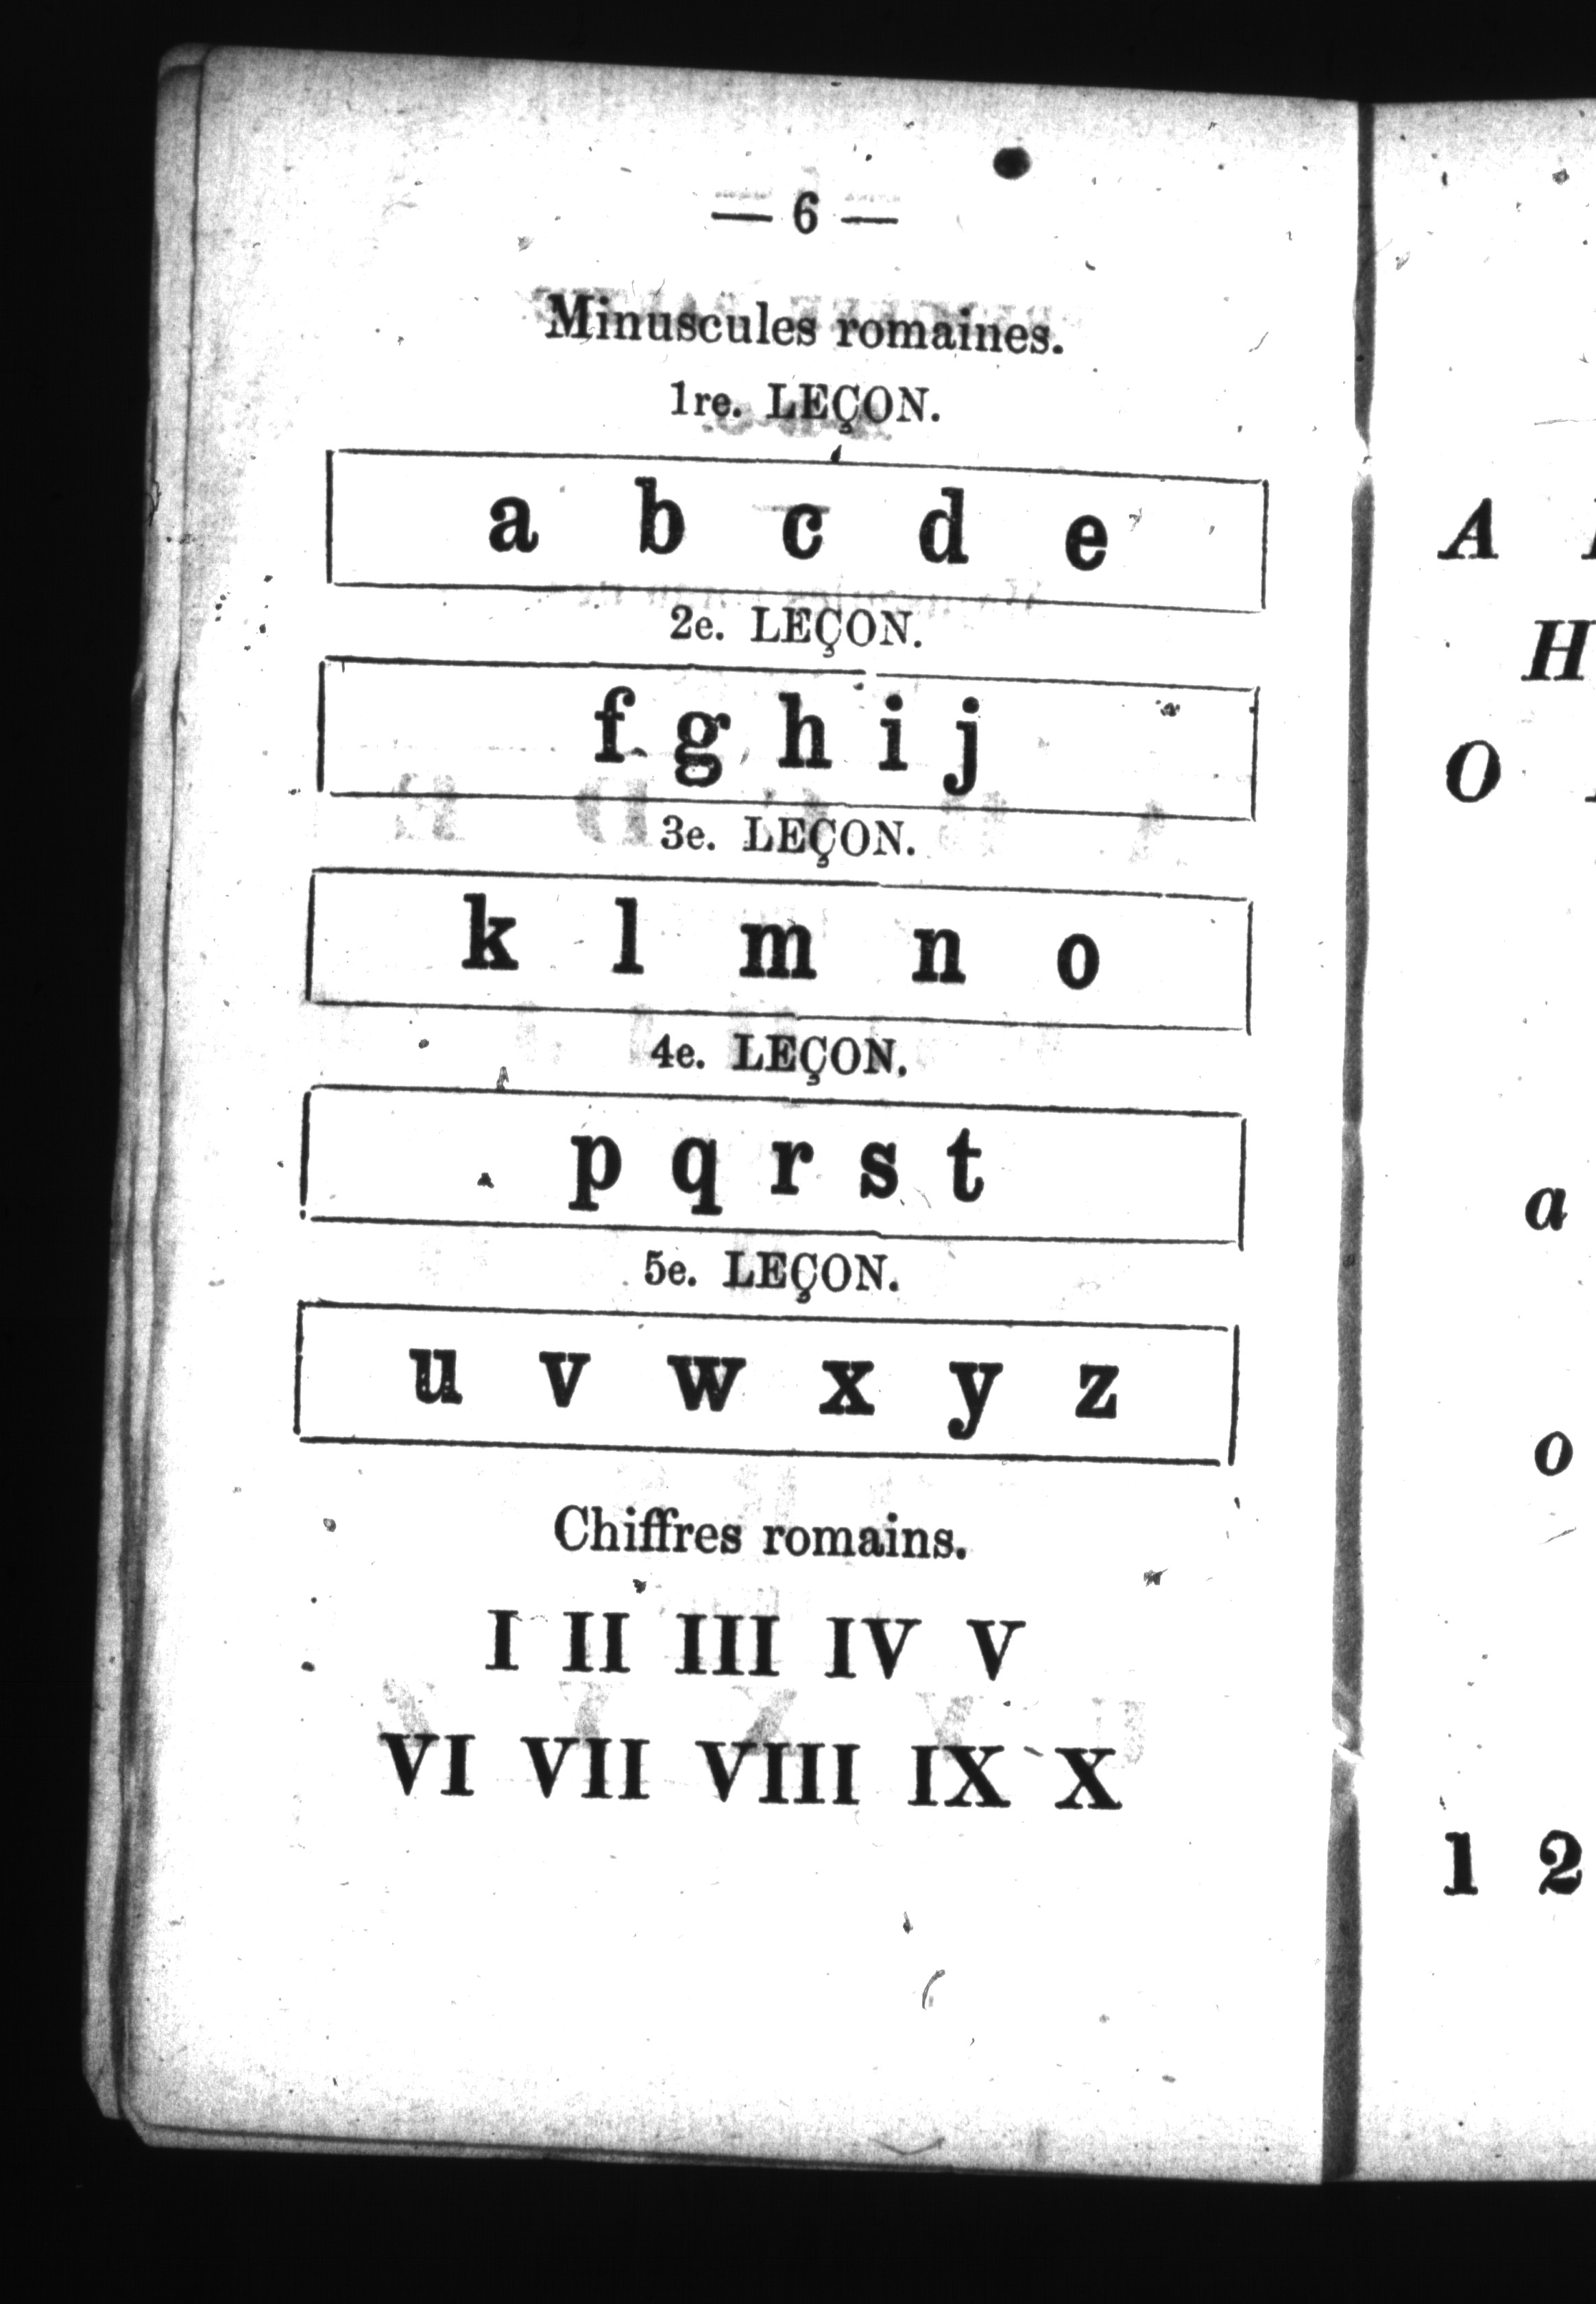 — 6 —
Minuscules romaines.
1re. LEÇON.
a b c d e
2e. LEÇON.
f g h i j
3e. LEÇON.
k l m n o
4e. LEÇON.
p q r s t
5e. LEÇON.
u v w x y z
Chiffres romains.
I II III IV V
VI VII VIII IX X
A
H
O
a
o
1 2